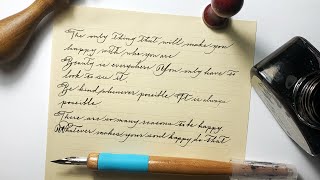 The only thing that will make you
happy with who you are
Beauty is everywhere You only have to
look to see it
Be kind whenever possible It is always
possible
There are so many reasons to be happy
Whatever makes your soul happy do that